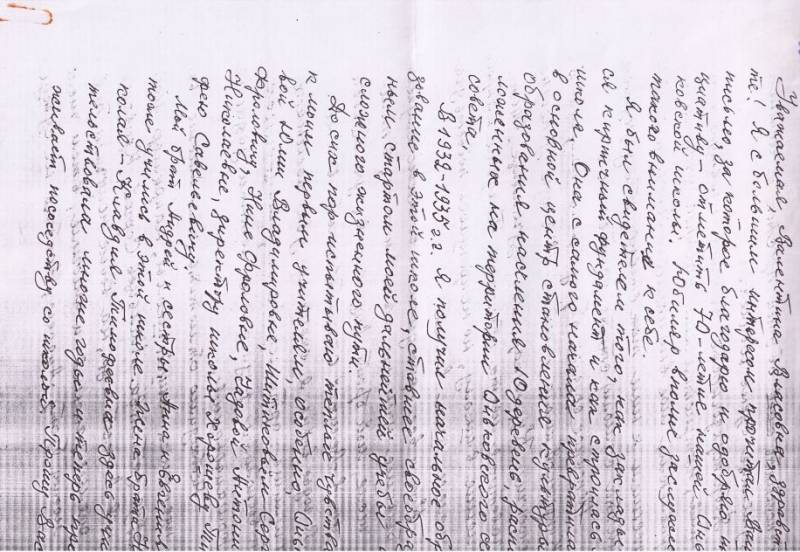 Уважаемая Валентина Власовна, здравст
те! Я с большим интересом прочитал Ваш
письмо, за которое благодарю и одобряю и
циативу - отметить 70-летие нашей Онь
ковской школы. Юбиляр вполне заслужи
такого внимания к себе.
Я был свидетелем того, как заклады
ся кирпичный фундамент и как строилась
школа. Она с самого начала превратила
в основной центр становления культуры
образования населения 10 деревень, расп
ложенных на территории Оньковского се
совета.
В 1932-1935 г.г. я получил начальное обр
зование в этой школе, ставшее своеобраз
ным стартом моей дальнейшей учебы
сложного жизненного пути.
До сих пор испытываю теплые чувства
к моим первым учителям, особенно, Онь
вой Юлии Владимировне, Шитикову Серг
Фроловичу, Нине Фроловне, Антони
Николаевне, директору школы Ти
фею Савельевичу.
Мой брат Андрей и сестры: Анна и Евгения
тоже учились в этой школе. Жена брата Н
колая - Клавдия Тимофеевна здесь учи
тельствовала многие годы и теперь про
живает по соседству со школой. Прошу Вас